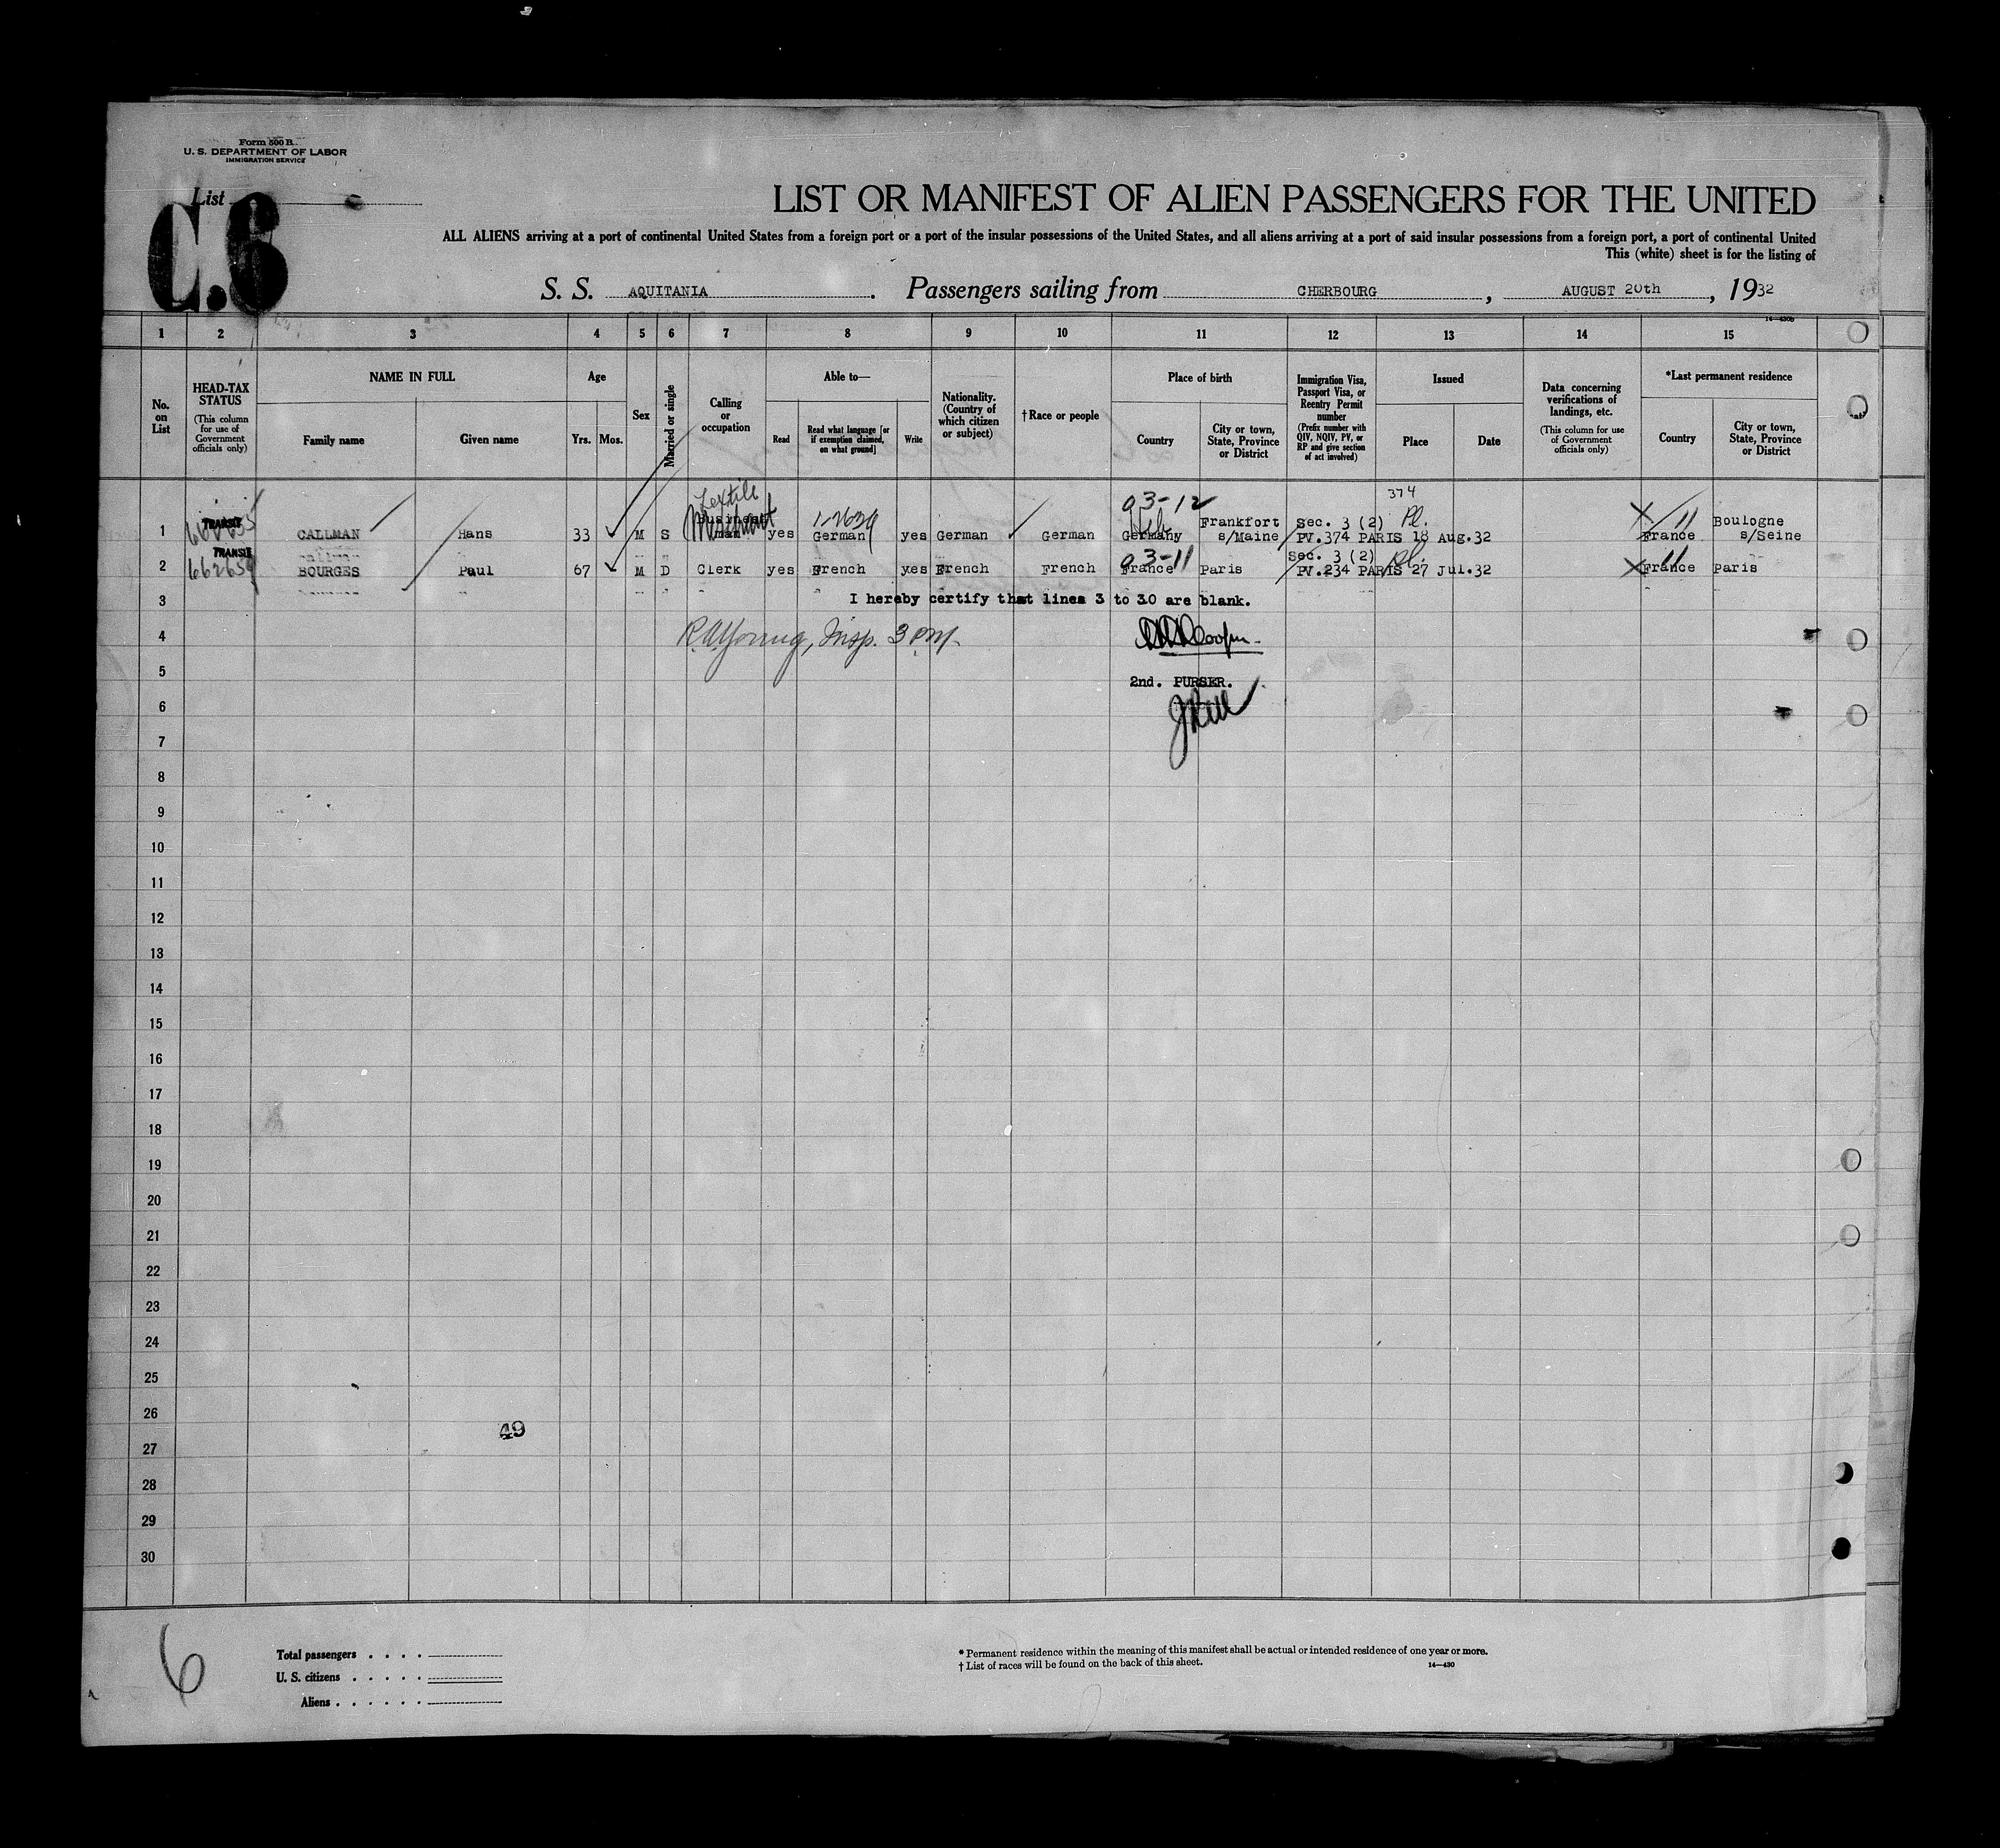 Form 500 B.
U. S. DEPARTMENT OF LABOR
IMMIGRATION SERVICE
List
C.6
LIST OR MANIFEST OF ALIEN PASSENGERS FOR THE UNITED
ALL ALIENS arriving at a port of continental United States from a foreign port or a port of the insular possessions of the United States, and all aliens arriving at a port of said insular possessions from a foreign port, a port of continental United
This (white) sheet is for the listing of
S. S. AQUITANIA. Passengers sailing from CHERBOURG, AUGUST 20th, 1932
1 2 3 4 5 6 7 8 9 10 11 12 13 14 15
No. on List
HEAD-TAX STATUS
(This column for use of Government officials only)
NAME IN FULL
Family name Given name
Age
Yrs. Mos.
Sex
Married or single
Calling or occupation
Able to—
Read Read what language [or if exemption claimed, on what ground] Write
Nationality. (Country of which citizen or subject)
†Race or people
Place of birth
Country City or town, State, Province or District
Immigration Visa, Passport Visa, or Reentry Permit number
(Prefix number with QIV, NQIV, PV, or RP and give section of act involved)
Issued
Place Date
Data concerning verifications of landings, etc.
(This column for use of Government officials only)
*Last permanent residence
Country City or town, State, Province or District
14—430b
Textile 03-12 374
TRANSIT Merchant Heb Frankfort Sec. 3 (2) Pl. X 11 Boulogne
1 CALLMAN Hans 33 M S man yes German yes German German Germany s/Maine PV.374 PARIS 18 Aug.32 France s/Seine
TRANSIT 03-11 Sec. 3 (2) Pl. 11
2 662654 BOURGES Paul 67 M D Clerk yes French yes French French France Paris PV.234 PARIS 27 Jul.32 X France Paris
3 I hereby certify that lines 3 to 30 are blank.
4 R.A. Young, Insp. 3 P.M.
5 2nd. PURSER.
6
7
8
9
10
11
12
13
14
15
16
17
18
19
20
21
22
23
24
25
26
49
27
28
29
30
6
Total passengers . . . .
U. S. citizens . . . . .
Aliens . . . . . .
* Permanent residence within the meaning of this manifest shall be actual or intended residence of one year or more.
† List of races will be found on the back of this sheet. 14—430